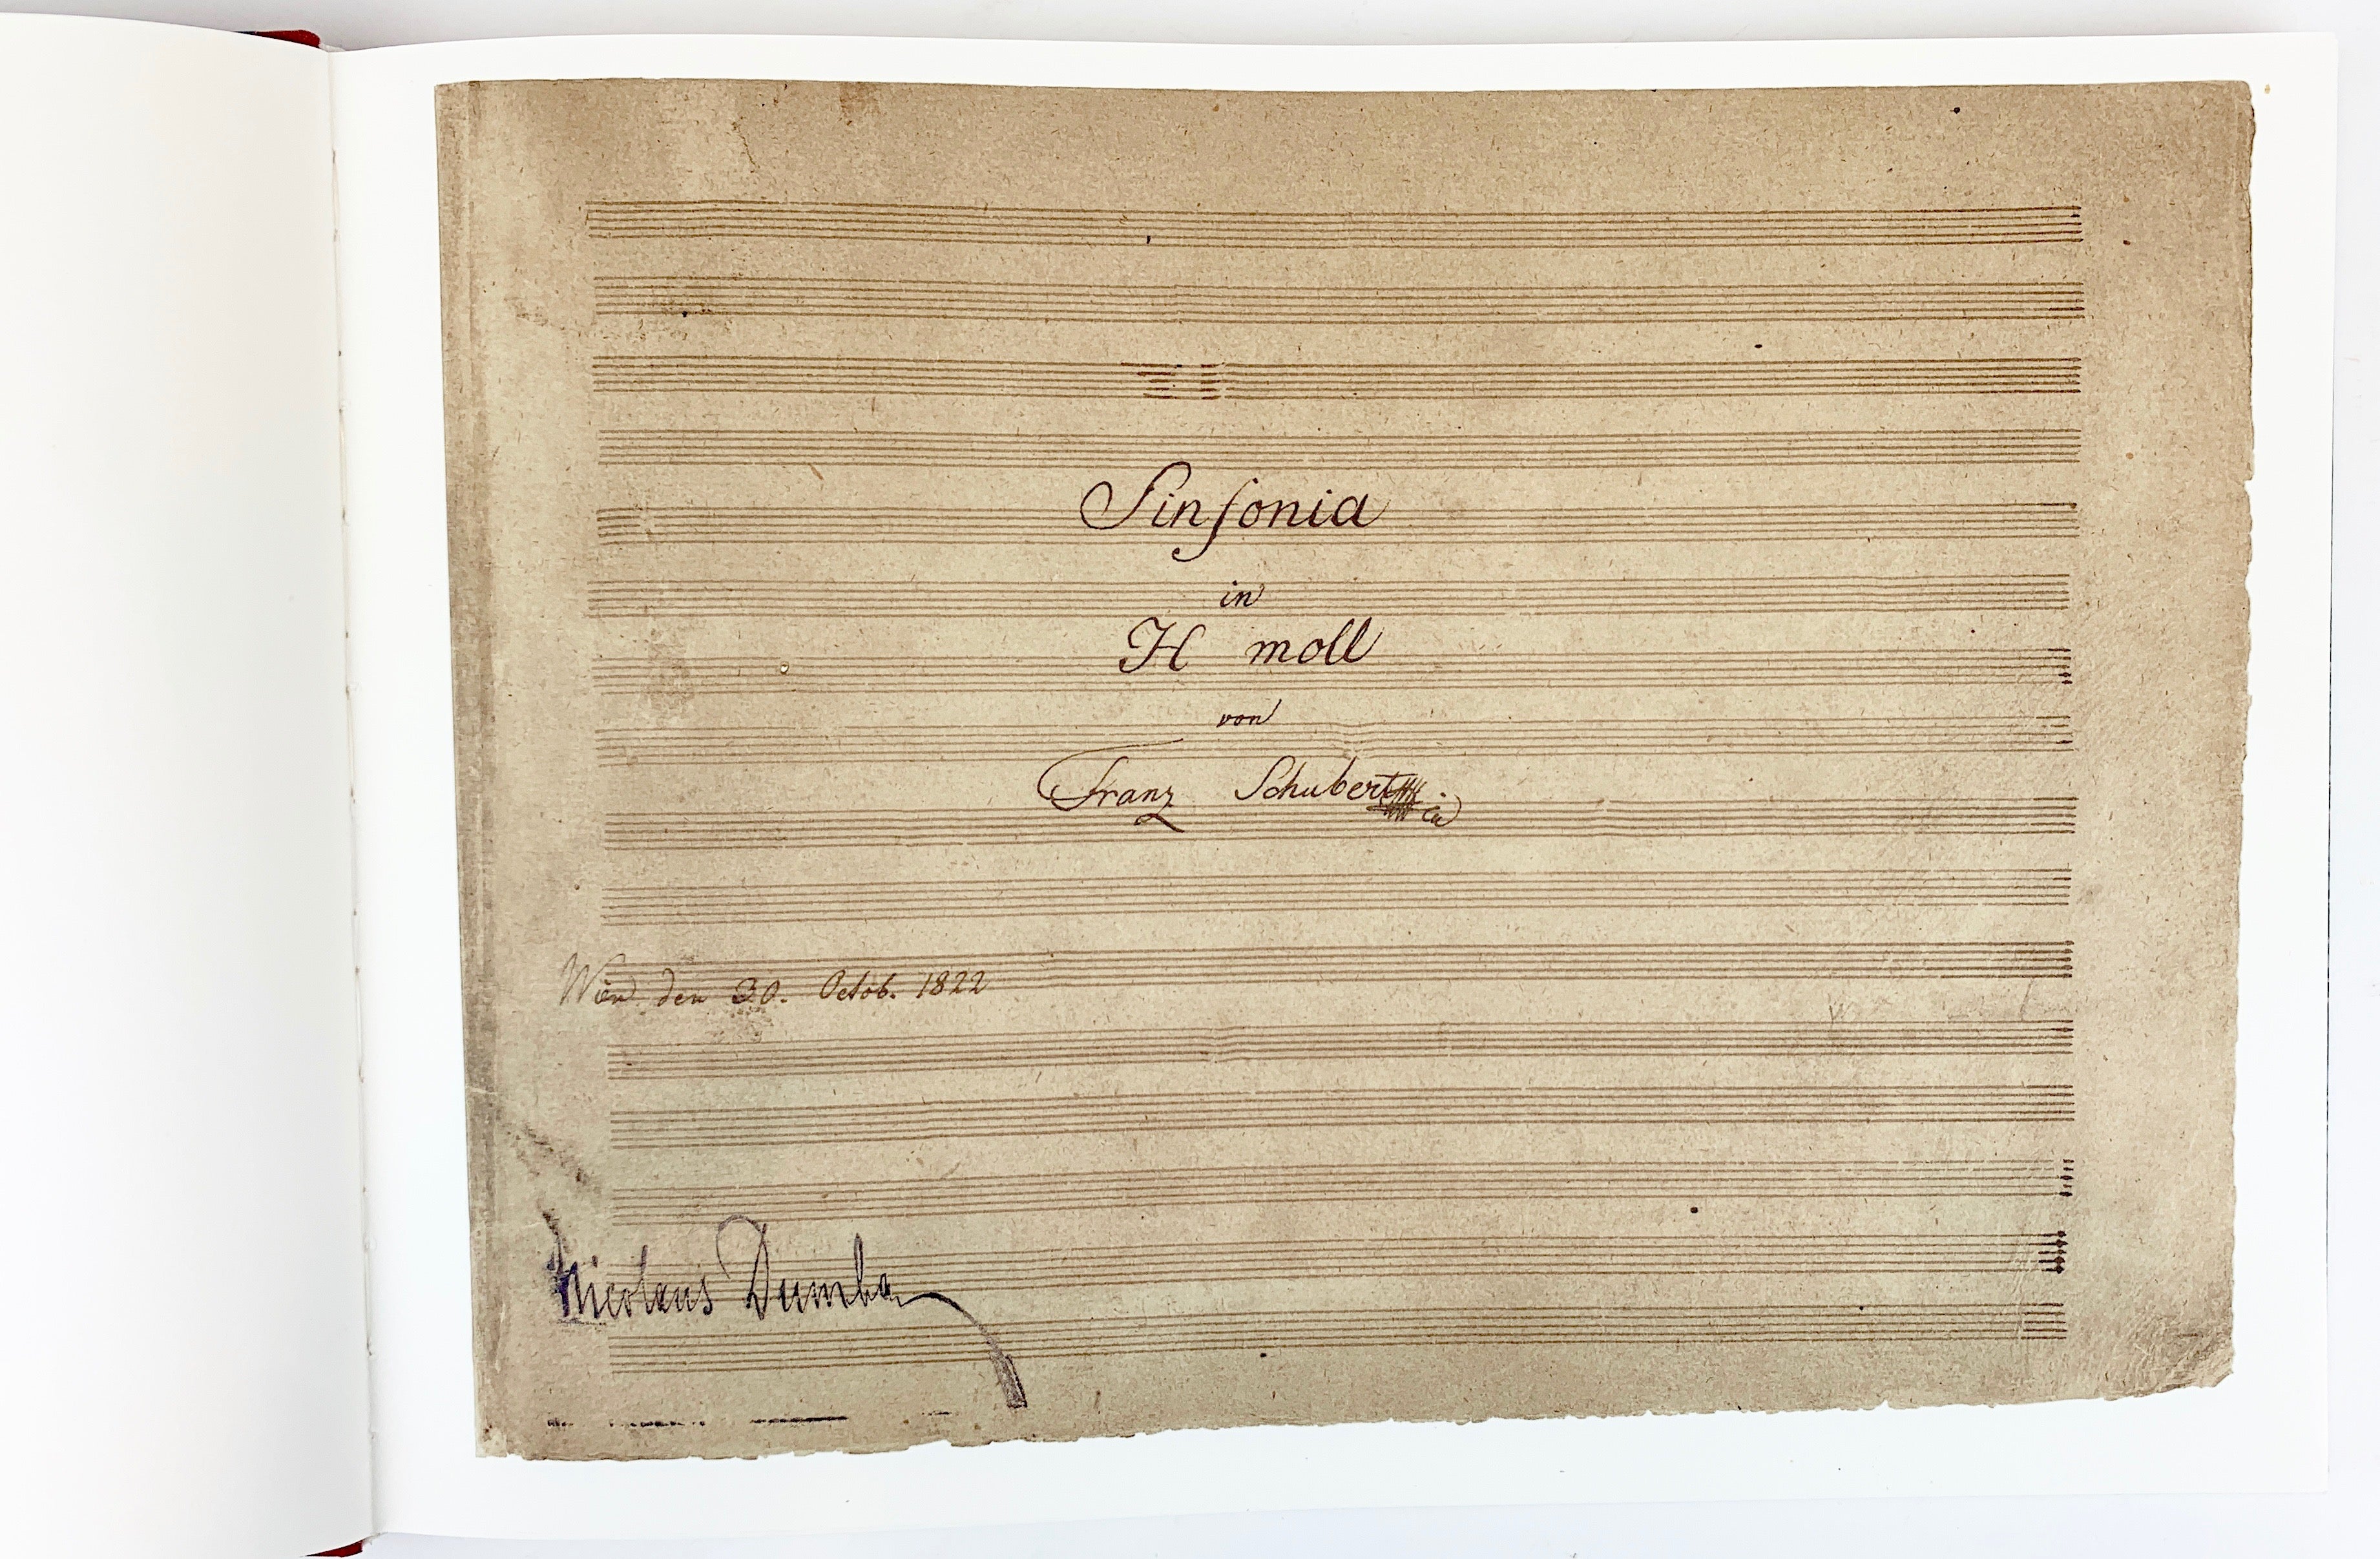 Sinfonia
in
H moll
von
Franz Schubert
Wien den 30. Octob. 1822
Nicolaus Dumba